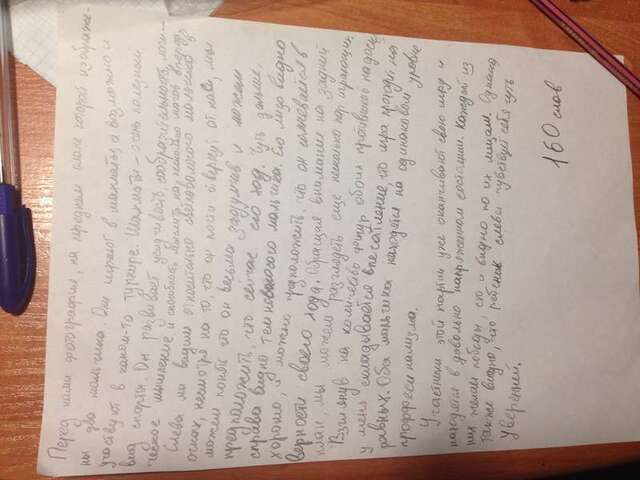 Перед нами фотография, на переднем плане которой изображе-
ны два мальчика. Они играют в шахматы, а возможно и
участвуют в каком-то турнире. Шахматы - очень полезный
вид спорта. Он развивает усидчивость, сообразительность, логи-
ческое мышление и способность мыслить на несколько шагов вперёд.
Слева мы видим относительно светловолосого мальчика в
очках, несмотря на то, что он почти отвернут от нас, мы
можем понять что он весьма задумчив и можем
предположить, что сейчас его ход. Чуть дальше,
справа видно темноволосого мальчика. Его лицо видно
хорошо, и можно предположить, что он сомневается в
верности своего хода. Обращая внимание на задний
план, мы можем разглядеть еще несколько пар играющих.
Взглянув на количество фигур обоих противников на доске,
у меня складывается впечатление, что игра проходит на
равных. Оба мальчика находятся на одинаковом уровне
проффесианализма.
Участники этой партии уже оканчивают свою игру и
находятся в довольно напряженном состоянии. Каждый из
них желает победы, это и видно по их лицам. Однако
также видно, что ребенок слева чувствует себя чуть
уверенней.
160 слов